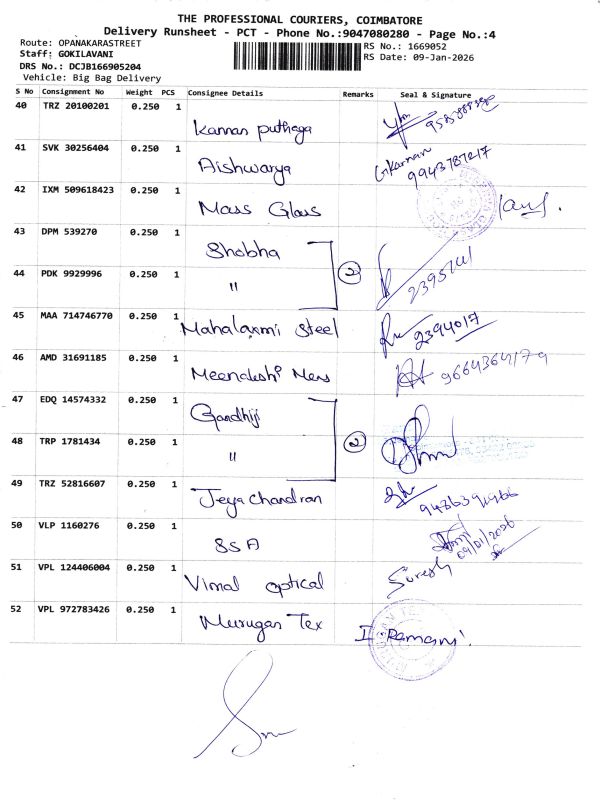 THE PROFESSIONAL COURIERS, COIMBATORE
Delivery Runsheet - PCT - Phone No.:9047080280 - Page No.:4
Route: OPANAKARASTREET
Staff: GOKILAVANI
DRS No.: DCJB166905204
Vehicle: Big Bag Delivery
RS No.: 1669052
RS Date: 09-Jan-2026
S No Consignment No Weight PCS Consignee Details Remarks Seal & Signature
40 TRZ 20100201 0.250 1 Kannan puthaga
41 SVK 30256404 0.250 1 Aishwarya 9943787217
42 IXM 509618423 0.250 1 Mass Glass
43 DPM 539270 0.250 1 Shobha
44 PDK 9929996 0.250 1 " 2 2395741
45 MAA 714746770 0.250 1 Mahalaxmi Steel 2394017
46 AMD 31691185 0.250 1 Meenakshi Mens 9664364179
47 EDQ 14574332 0.250 1 Gandhiji
48 TRP 1781434 0.250 1 " 2
49 TRZ 52816607 0.250 1 Jeya Chandran
50 VLP 1160276 0.250 1 SSA 09/01/2026
51 VPL 124406004 0.250 1 Vimal optical Suresh
52 VPL 972783426 0.250 1 Murugan Tex I. Ramani.